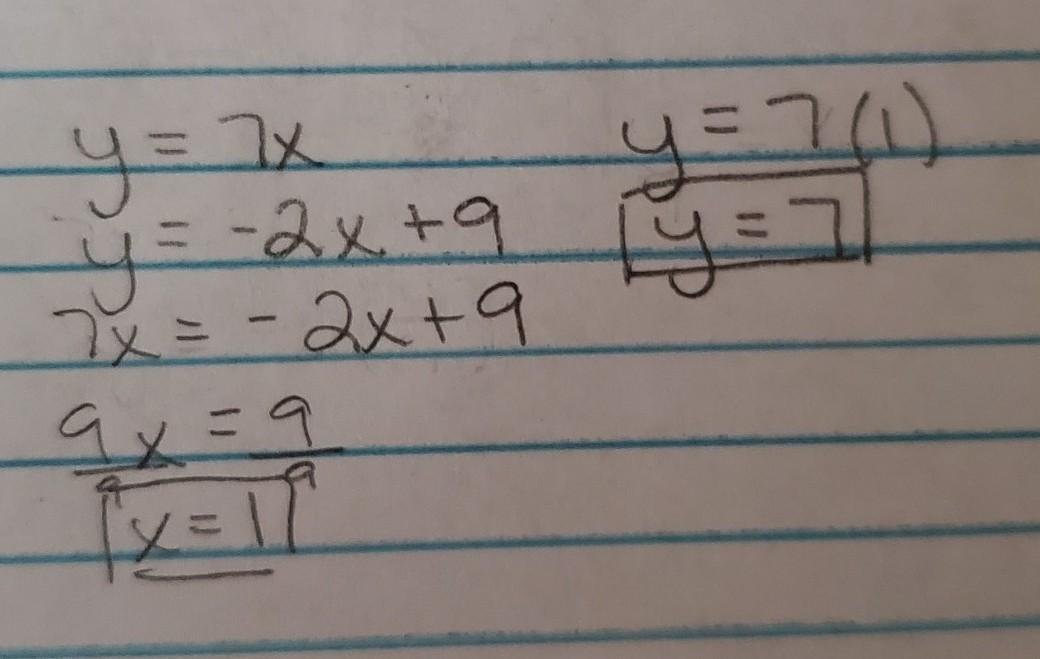 y = 7x
y = -2x + 9
7x = - 2x + 9
9x = 9
9 9
x = 1
y = 7(1)
y = 7